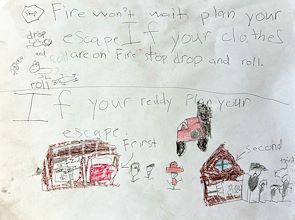 Stop
Fire won't wait plan your
escape If your clothes
drop
and
are on Fire stop drop and roll.
roll
If your reddy Plan your
escape.
Frirst
second